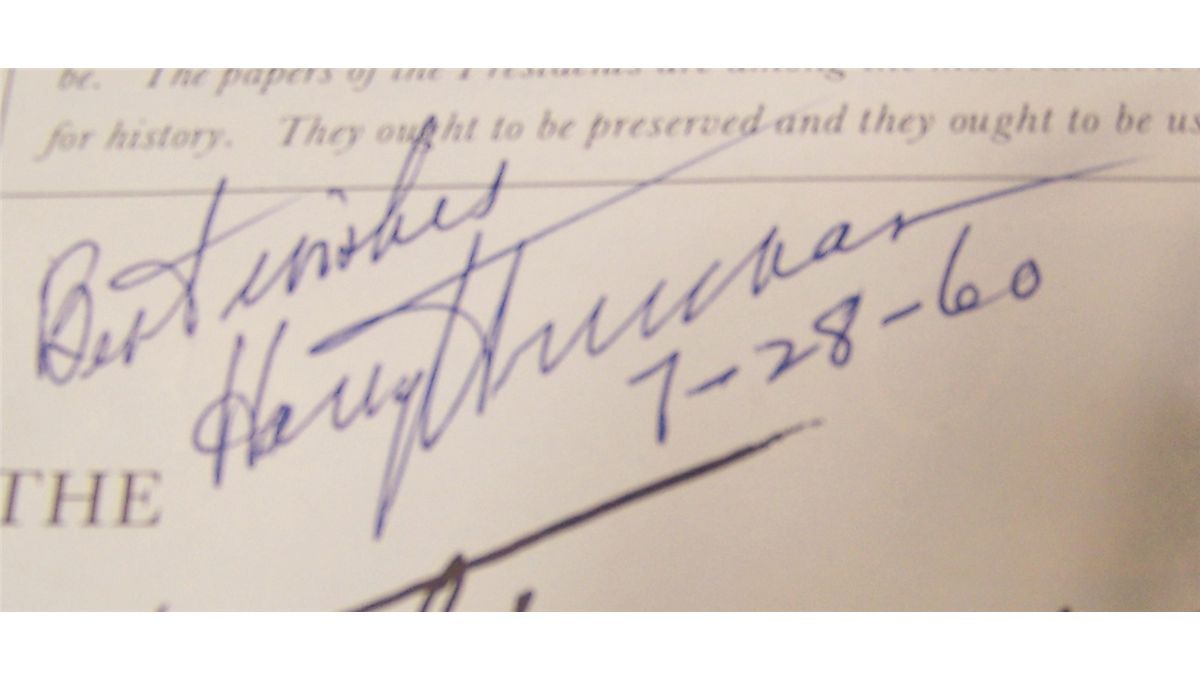 be. The papers of the Presidents are among the most
for history. They ought to be preserved and they ought to be us
Best wishes
Harry Truman
7-28-60
THE